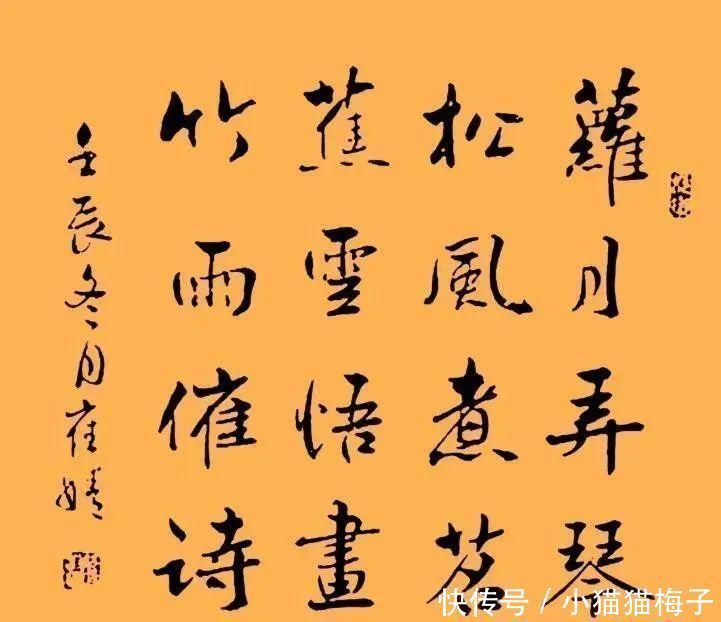 蘿月弄琴
松風煮茗
蕉雲悟畫
竹雨催诗
壬辰冬月崔婧
快传号 / 小猫猫梅子